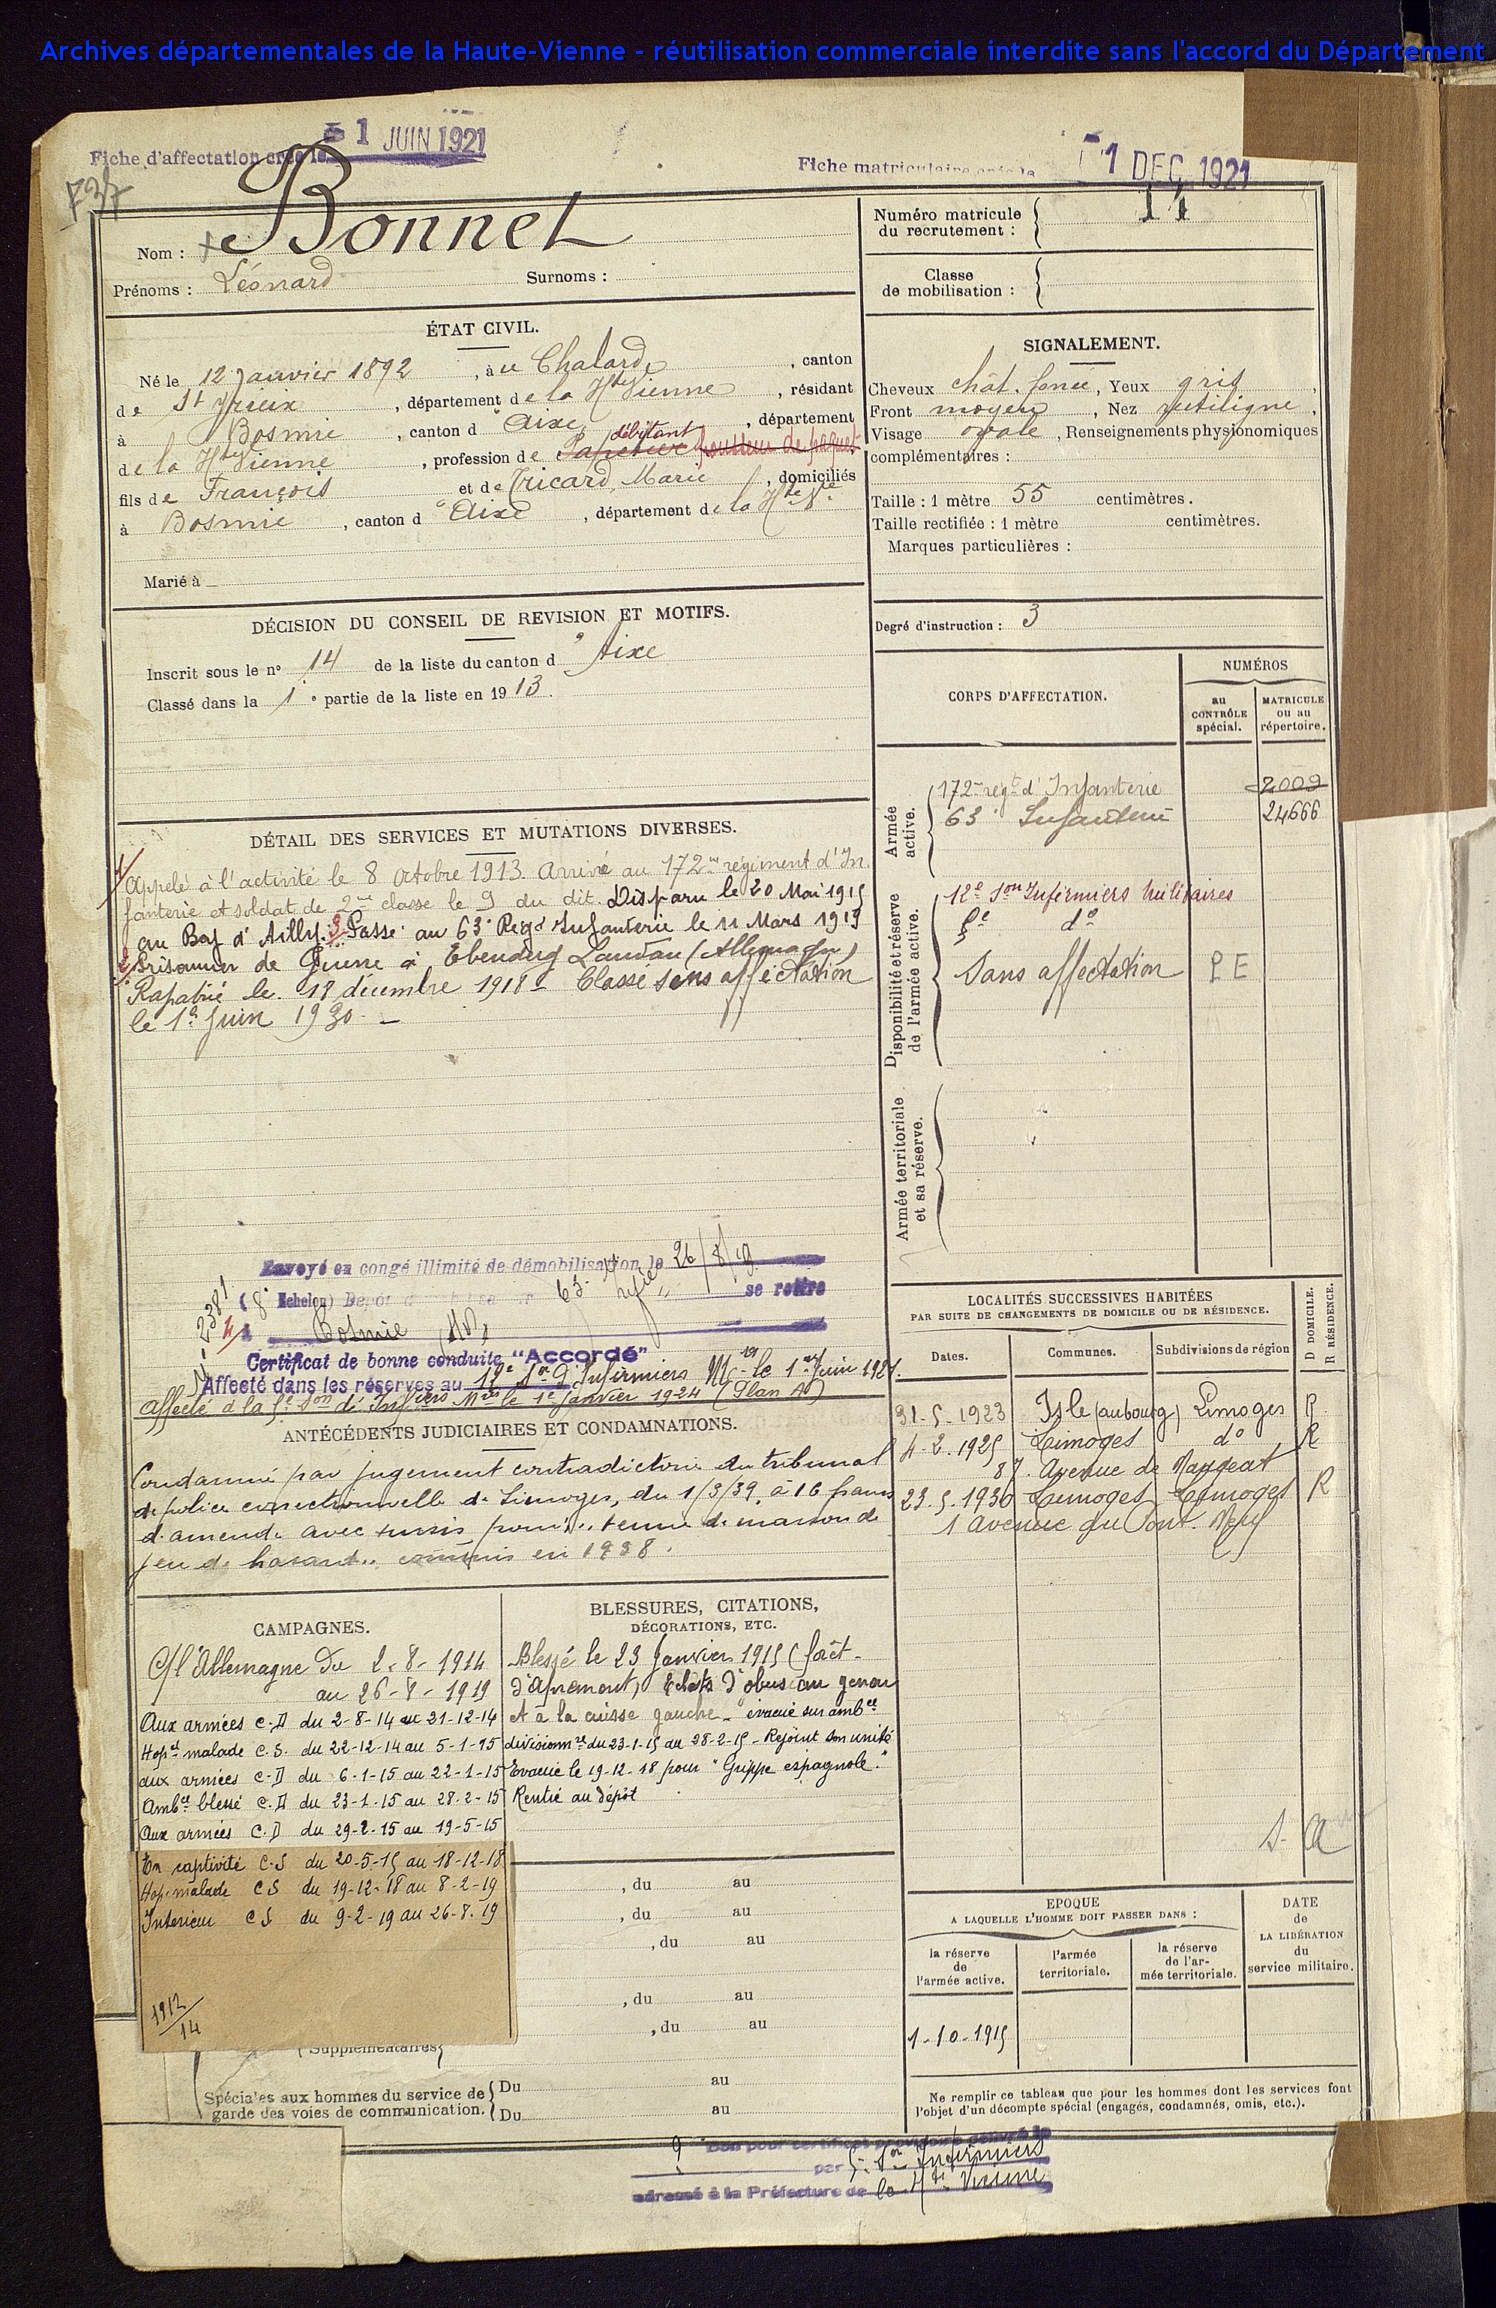 Archives départementales de la Haute-Vienne - réutilisation commerciale interdite sans l'accord du Département
Fiche d'affectation créée le 1 JUIN 1921
Fiche matriculaire créée le 1 DEC. 1921
737
Nom : Bonnet
Prénoms : Léonard Surnoms :
Numéro matricule du recrutement : 14
Classe de mobilisation :
ÉTAT CIVIL.
Né le 12 Janvier 1892, à u Chalard, canton
de St Yrieix, département de la Hte Vienne, résidant
à Bosmie, canton d' Aixe, département
débitant
de la Hte Vienne, profession de Papetier pousseur de paquet
fils de François et de Tricard Marie, domiciliés
à Bosmie, canton d' Aixe, département de la Hte Vne
Marié à
SIGNALEMENT.
Cheveux chât. foncé, Yeux gris,
Front moyen, Nez rectiligne,
Visage ovale, Renseignements physionomiques
complémentaires :
Taille : 1 mètre 55 centimètres.
Taille rectifiée : 1 mètre centimètres.
Marques particulières :
DÉCISION DU CONSEIL DE REVISION ET MOTIFS.
Inscrit sous le n° 14 de la liste du canton d' Aixe
Classé dans la 1e partie de la liste en 1913.
Degré d'instruction : 3
CORPS D'AFFECTATION.
NUMÉROS
au CONTRÔLE spécial.
MATRICULE ou au répertoire.
Armée active.
172me régt d'Infanterie 2009
63e Infanterie 24666
Disponibilité et réserve de l'armée active.
12e Son Infirmiers Militaires
5e do
Sans affectation P E
Armée territoriale et sa réserve.
DÉTAIL DES SERVICES ET MUTATIONS DIVERSES.
1/ Appelé à l'activité le 8 octobre 1913. Arrivé au 172me régiment d'In
fanterie et soldat de 2me classe le 9 du dit. Disparu le 20 Mai 1915
au Bois d'Ailly. 3/ Passé au 63e Régt d'Infanterie le 11 Mars 1919
2/ Prisonnier de Guerre à Ebenberg Landau (Allemagne)
Rapatrié le 18 décembre 1918 - Classé sans affectation
le 1er Juin 1930 -
Envoyé en congé illimité de démobilisation le 26/8/19
(8e Echelon) Dépôt 63e se retire
N° 2381
4/ à Bosmie HV
Certificat de bonne conduite "Accordé"
Affecté dans les réserves au 12e Son d'Infirmiers Mres le 1er Juin 1921.
affecté à la 5e Son d'Infiers Mres le 1er Janvier 1924 (Plan A)
ANTÉCÉDENTS JUDICIAIRES ET CONDAMNATIONS.
Condamné par jugement contradictoire du tribunal
de police correctionnelle de Limoges, du 1/3/39, à 16 francs
d'amende avec sursis pour : " tenue de maison de
jeu de hasard " commis en 1938.
LOCALITÉS SUCCESSIVES HABITÉES
PAR SUITE DE CHANGEMENTS DE DOMICILE OU DE RÉSIDENCE.
Dates. Communes. Subdivisions de région D DOMICILE. R RÉSIDENCE.
31-5-1923 Isle (aubourg) Limoges R
4-2-1925 Limoges do R
87. Avenue de Naugeat
23.5.1930 Limoges Limoges R
1 avenue du Pont-Neuf
S. A
CAMPAGNES.
C/ l'Allemagne Du 2-8-1914
au 26-8-1919
Aux armées C.D du 2-8-14 au 21-12-14
Hopal malade C.S. du 22-12-14 au 5-1-15
aux armées C-D du 6-1-15 au 22-1-15
Ambce blessé C.D du 23-1-15 au 28-2-15
Aux armées C.D du 29-2-15 au 19-5-15
En captivité C.S du 20-5-15 au 18-12-18
Hop. malade C S du 19-12-18 au 8-2-19
Intérieur C S du 9-2-19 au 26-8-19
1912/14
BLESSURES, CITATIONS,
DÉCORATIONS, ETC.
Blessé le 23 Janvier 1915 (forêt
d'Apremont) Eclats d'obus au genou
et à la cuisse gauche - évacué sur ambce
divisionnre du 23-1-15 au 28-2-15 - Rejoint son unité
Evacué le 19-12-18 pour "Grippe espagnole."
Rentré au dépôt
, du au
, du au
, du au
, du au
, du au
(Supplémentaires)
Spéciales aux hommes du service de garde des voies de communication.
Du au
Du au
EPOQUE
A LAQUELLE L'HOMME DOIT PASSER DANS :
la réserve de l'armée active.
l'armée territoriale.
la réserve de l'armée territoriale.
DATE de LA LIBÉRATION du service militaire.
1-10-1915
Ne remplir ce tableau que pour les hommes dont les services font
l'objet d'un décompte spécial (engagés, condamnés, omis, etc.).
Bon pour certificat provisoire délivré le
par 5e Son Infirmiers
adressé à la Préfecture de la Hte Vienne